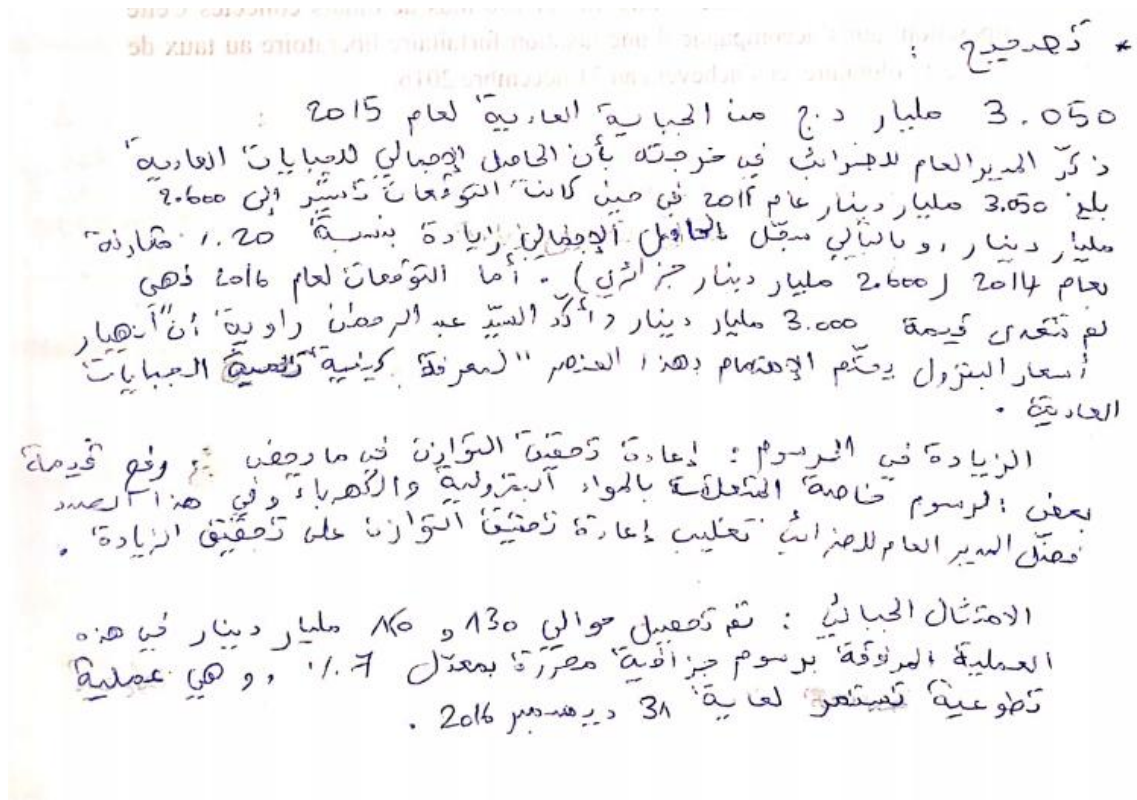 * تصحيح :
3.050 مليار د.ج من الجباية العادية لعام 2015 :
ذكّر المدير العام للضرائب في خرجته بأن الحاصل الإجمالي للجبايات العادية
بلغ 3.050 مليار دينار عام 2015 في حين كانت التوقعات تشير إلى 2.600
مليار دينار , و بالتالي سجّل الحاصل الإجمالي زيادة بنسبة 20 ٪ مقارنة
بعام 2014 (2.600 مليار دينار جزائري) . أما التوقعات لعام 2016 فهي
لم تتعدى قيمة 3.000 مليار دينار و أكّد السيّد عبد الرحمن راوية أن "انهيار
أسعار البترول يحتّم الإهتمام بهذا العنصر "لمعرفة كيفية تنمية الجبايات
العادية .
الزيادة في الرسوم : إعادة تحقيق التوازن في ما يخص رفع قيمة
بعض الرسوم خاصة المتعلقة بالمواد البترولية والكهرباء و في هذا الصدد
فضّل المدير العام للضرائب تغليب إعادة تحقيق التوازن على تحقيق الزيادة .
الامتثال الجبائي : تم تحصيل حوالي 130 و 160 مليار دينار في هذه
العملية المرفوقة برسوم جزافية محررة بمعدّل 7 ٪ , و هي عملية
تطوعية تستمر لغاية 31 ديسمبر 2016 .